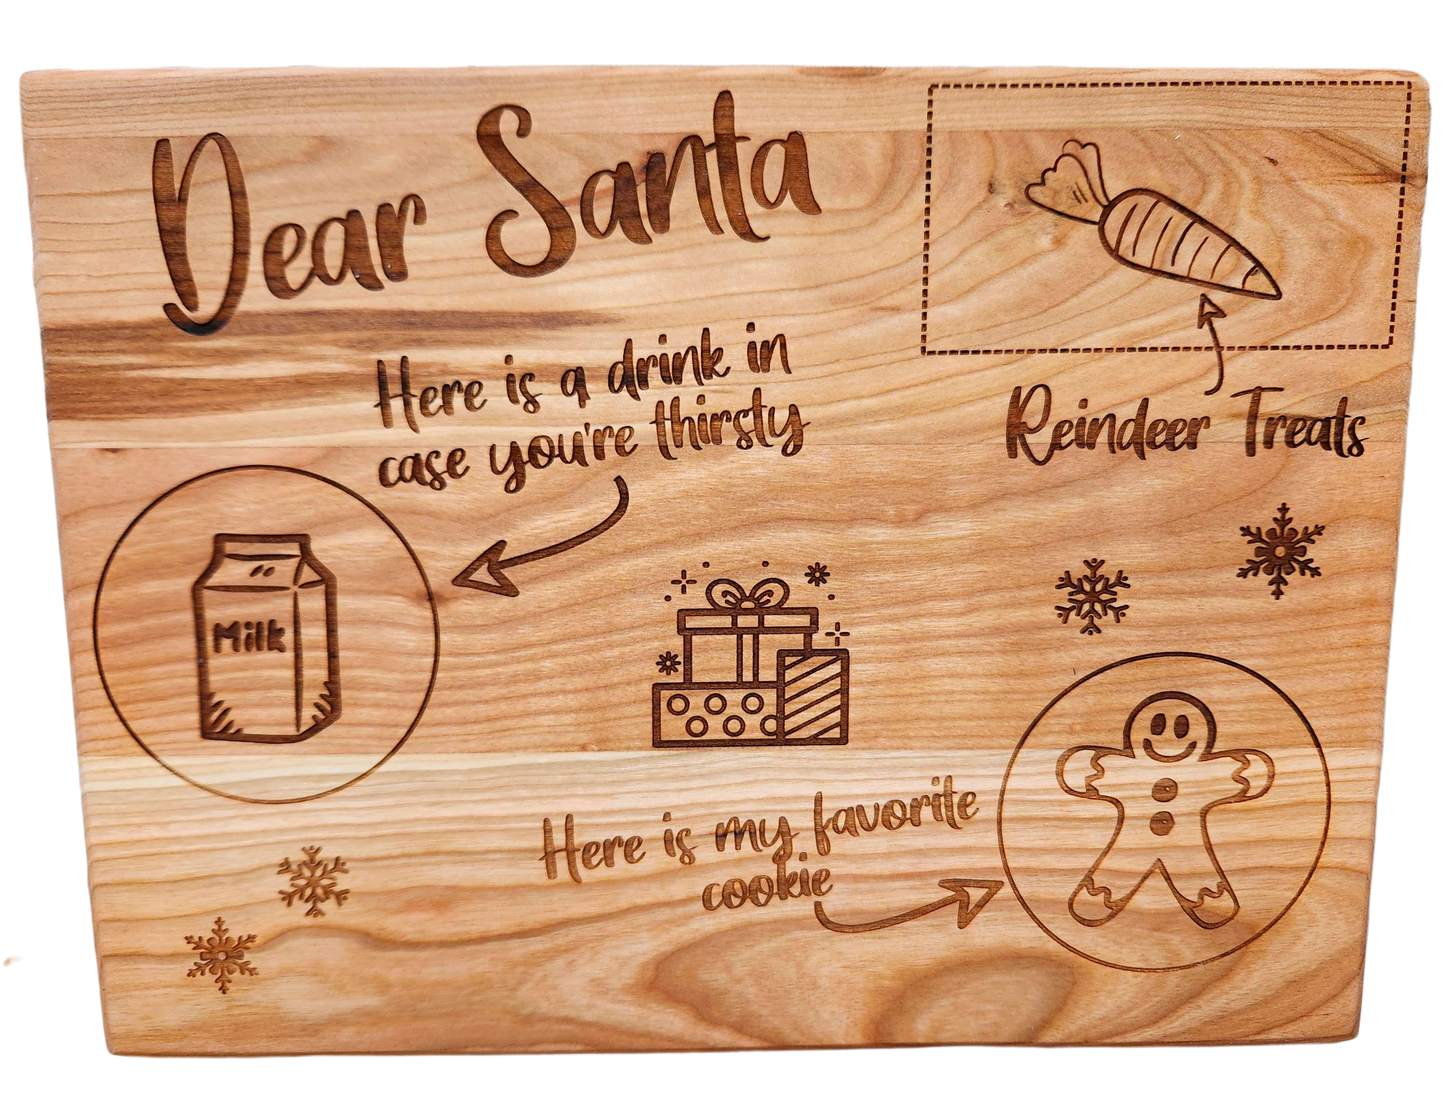 Dear Santa
Here is a drink in
case you're thirsty
Reindeer Treats
Milk
Here is my favorite
cookie